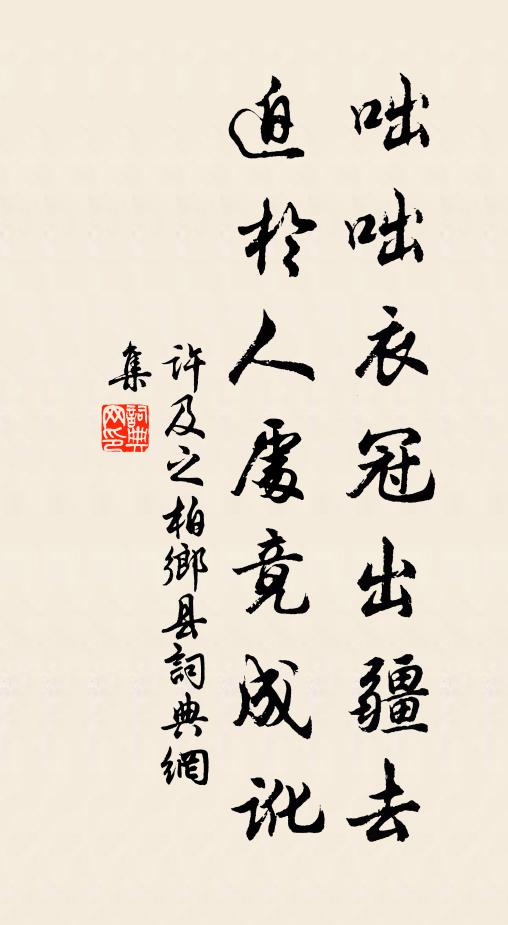 咄咄衣冠出疆去
迫於人處竟成訛
許及之柏鄉县詞典網
集
詞典网印